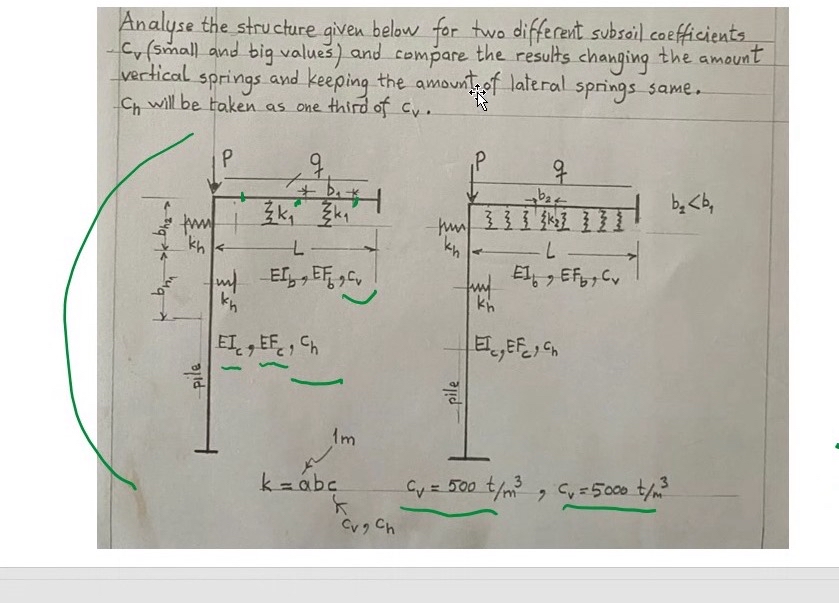 Analyse the structure given below for two different subsoil coefficients
Cv (small and big values) and compare the results changing the amount
vertical springs and keeping the amount of lateral springs same.
Ch will be taken as one third of Cv.
P q
b1
k1 k1
bh2
kh
L
EIb, EFb, Cv
bh1
kh
EIc, EFc, Ch
pile
P q
b2
b2<b1
k2
kh
L
EIb, EFb, Cv
kh
EIc, EFc, Ch
pile
1m
k = abc
Cv, Ch
Cv = 500 t/m³ , Cv = 5000 t/m³